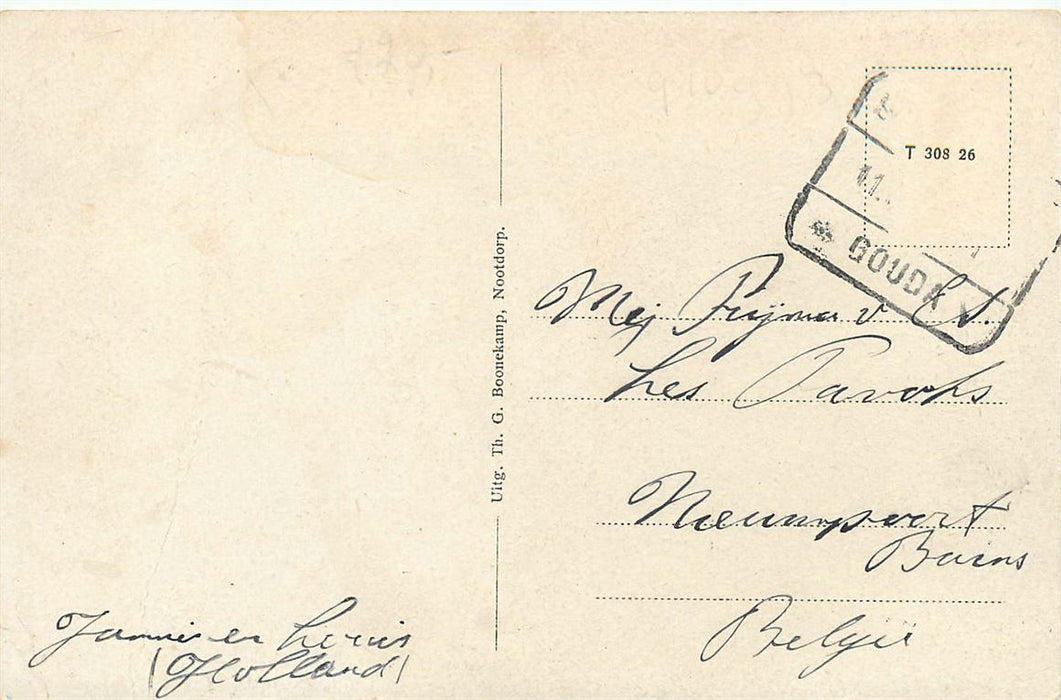 T 308 26
11.
GOUDA
Mej v
Les Pavots
Nieuwpoort
Bains
België
Uitg. Th. G. Boonekamp, Nootdorp.
en Louis
(Holland)